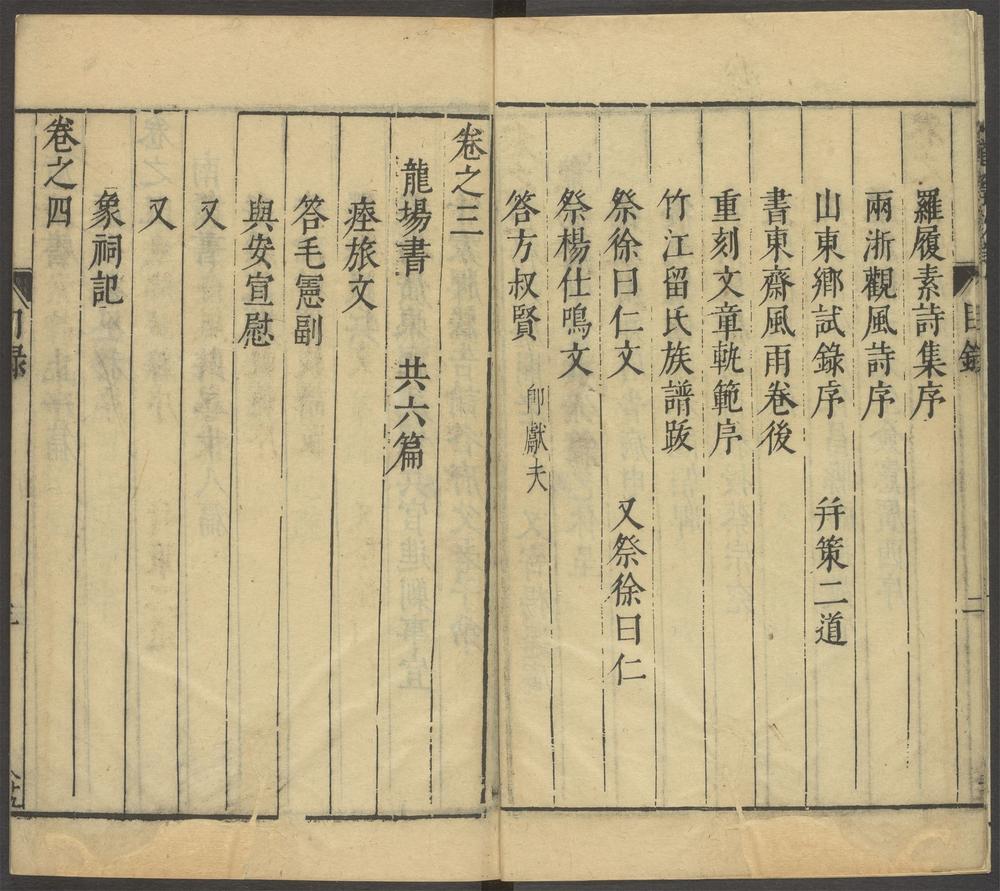 羅履素詩集序
兩浙觀風詩序
山東鄉試錄序 幷策二道
書東齋風雨卷後
重刻文章軌範序
竹江留氏族譜跋
祭徐曰仁文 又祭徐曰仁
祭楊仕鳴文
答方叔賢 卽獻夫
目錄
二
卷之三
龍場書 共六篇
瘞旅文
答毛憲副
與安宣慰
又
又
象祠記
卷之四